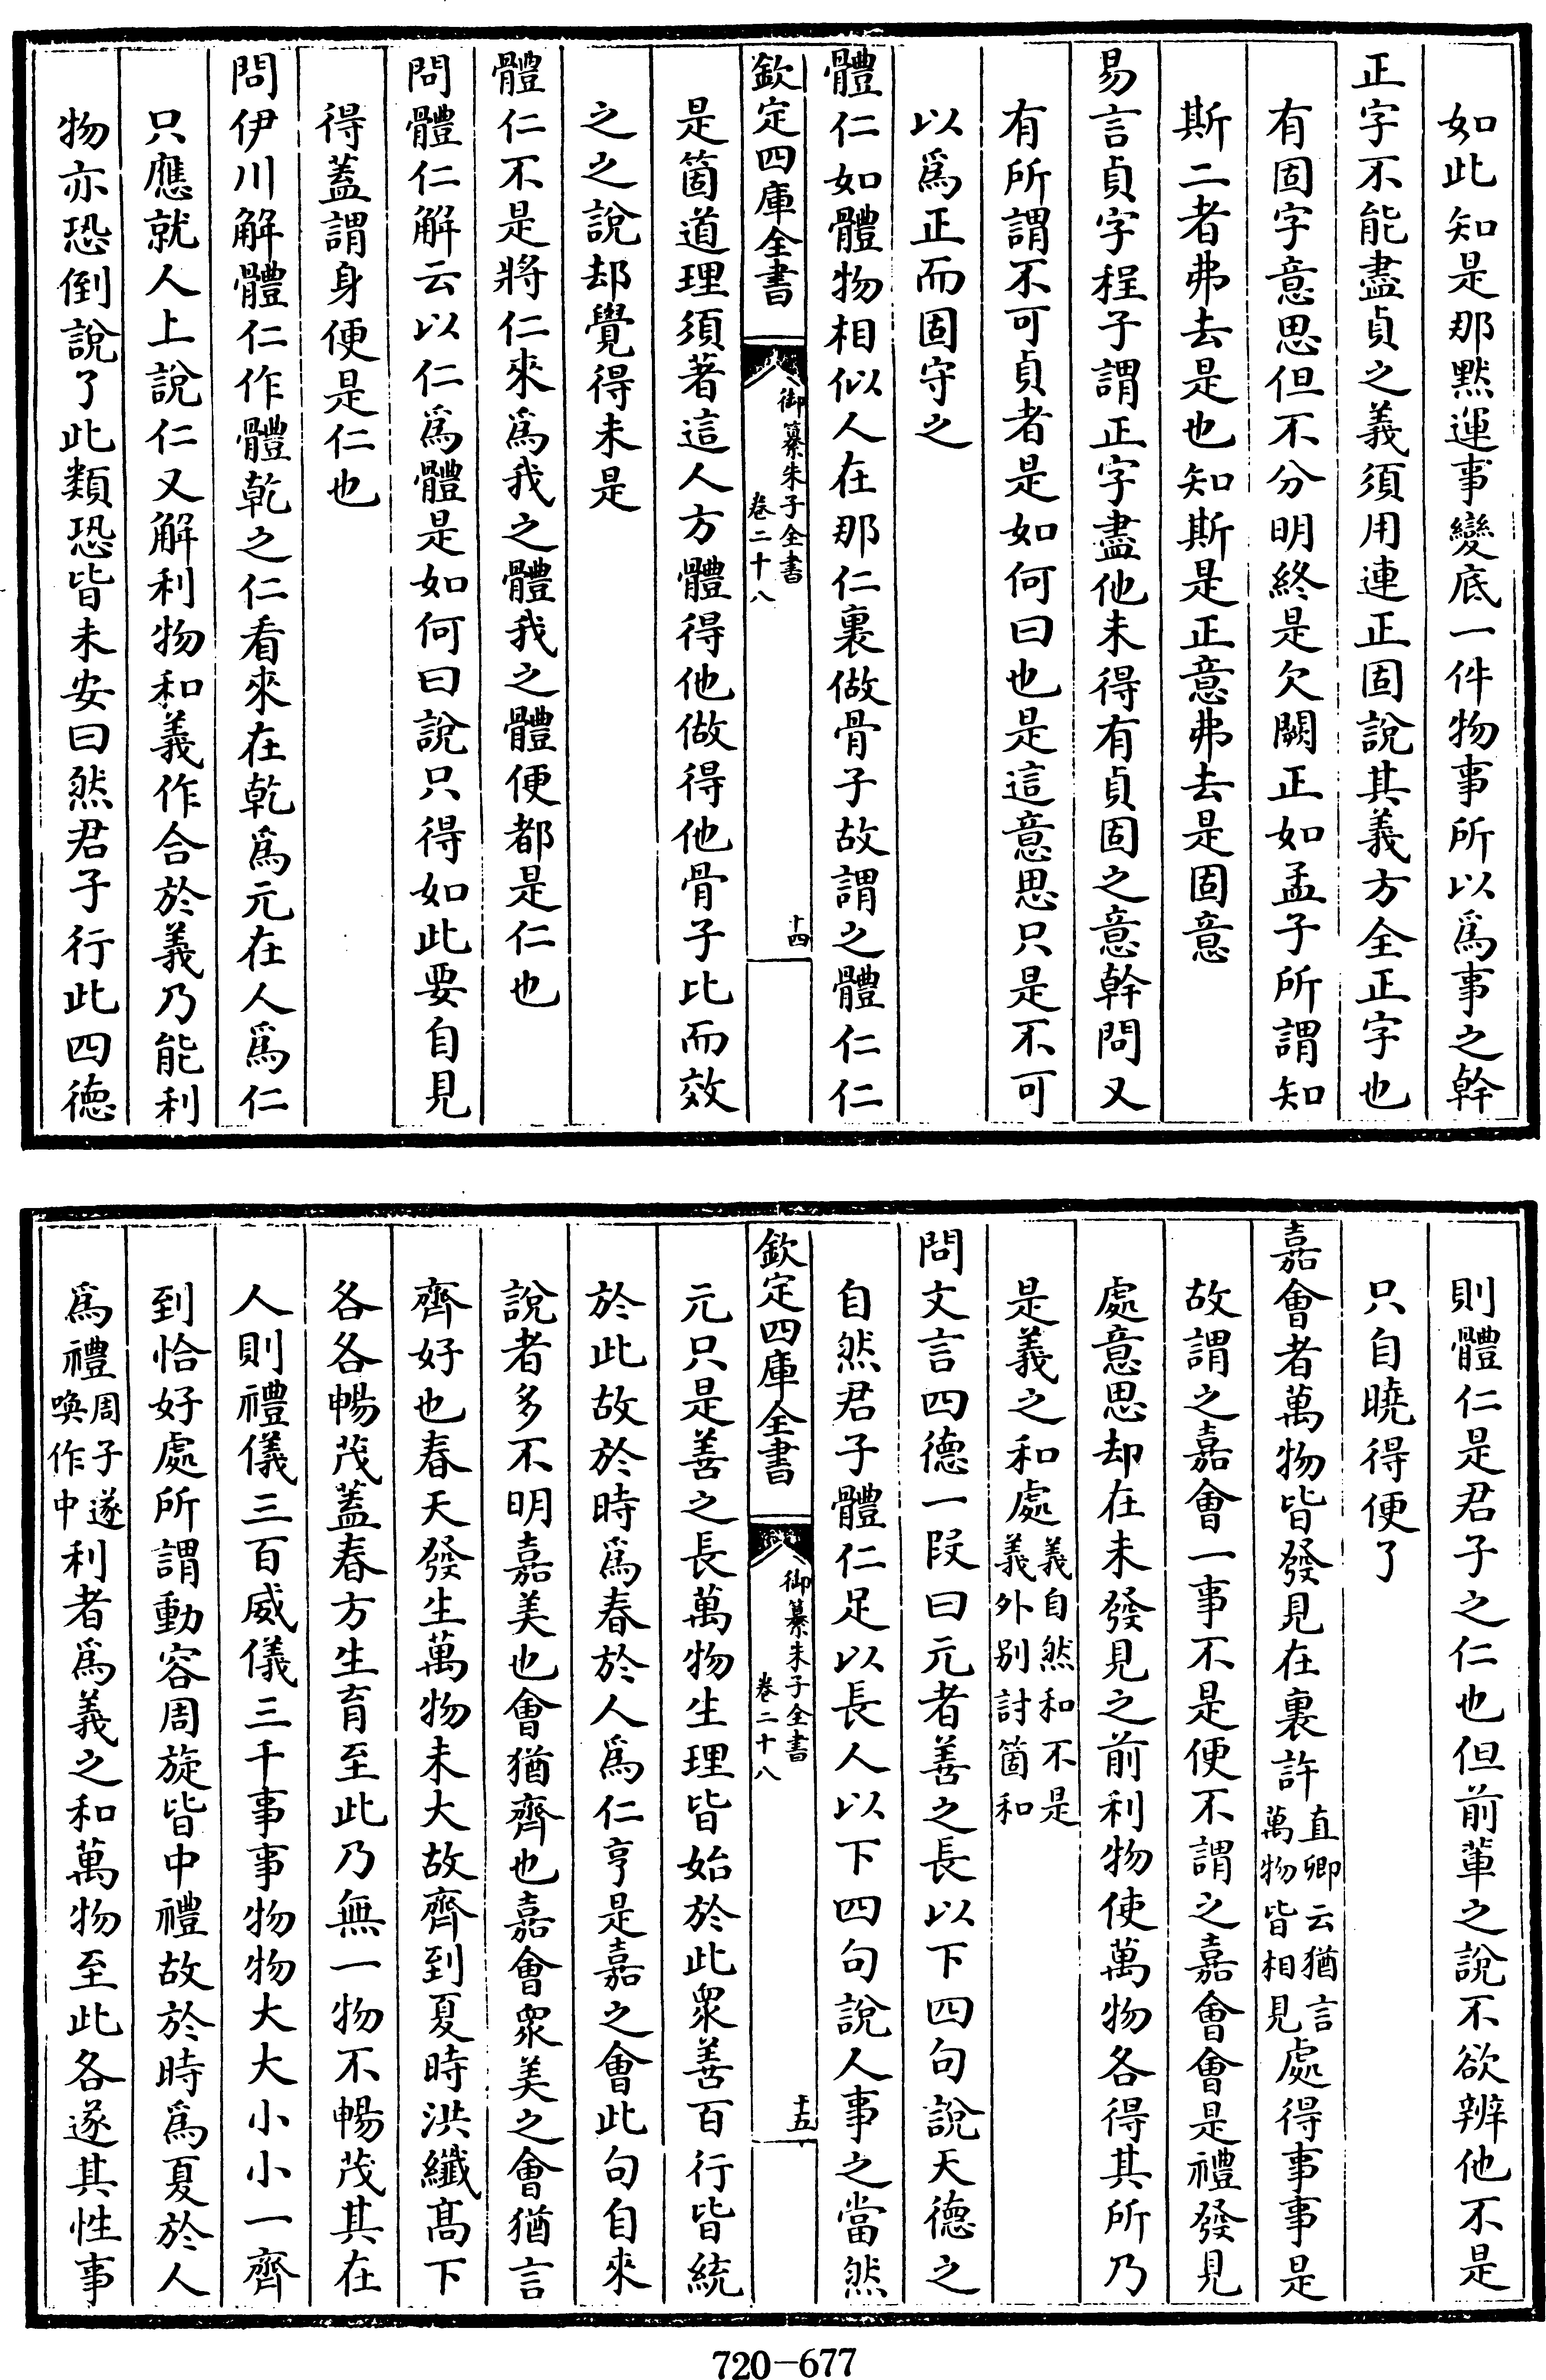 如此知是那黙運事變底一件物事所以爲事之幹
正字不能盡貞之義須用連正固說其義方全正字也
有固字意思但不分明終是欠闕正如孟子所謂知
斯二者弗去是也知斯是正意弗去是固意
易言貞字程子謂正字盡他未得有貞固之意幹問又
有所謂不可貞者是如何曰也是這意思只是不可
以爲正而固守之
體仁如體物相似人在那仁裏做骨子故謂之體仁仁
欽定四庫全書
御纂朱子全書
卷二十八
十四
是箇道理須著這人方體得他做得他骨子比而效
之之說却覺得未是
體仁不是將仁來爲我之體我之體便都是仁也
問體仁解云以仁爲體是如何曰說只得如此要自見
得蓋謂身便是仁也
問伊川解體仁作體乾之仁看來在乾爲元在人爲仁
只應就人上說仁又解利物和義作合於義乃能利
物亦恐倒說了此類恐皆未安曰然君子行此四德
則體仁是君子之仁也但前輩之說不欲辨他不是
只自曉得便了
嘉會者萬物皆發見在裏許直卿云猶言萬物皆相見處得事事是
故謂之嘉會一事不是便不謂之嘉會會是禮發見
處意思却在未發見之前利物使萬物各得其所乃
是義之和處義自然和不是義外別討箇和
問文言四德一段曰元者善之長以下四句說天德之
自然君子體仁足以長人以下四句說人事之當然
欽定四庫全書
御纂朱子全書
卷二十八
十五
元只是善之長萬物生理皆始於此衆善百行皆統
於此故於時爲春於人爲仁亨是嘉之會此句自來
說者多不明嘉美也會猶齊也嘉會衆美之會猶言
齊好也春天發生萬物未大故齊到夏時洪纖髙下
各各暢茂蓋春方生育至此乃無一物不暢茂其在
人則禮儀三百威儀三千事事物物大大小小一齊
到恰好處所謂動容周旋皆中禮故於時爲夏於人
爲禮周子遂喚作中利者爲義之和萬物至此各遂其性事
720-677